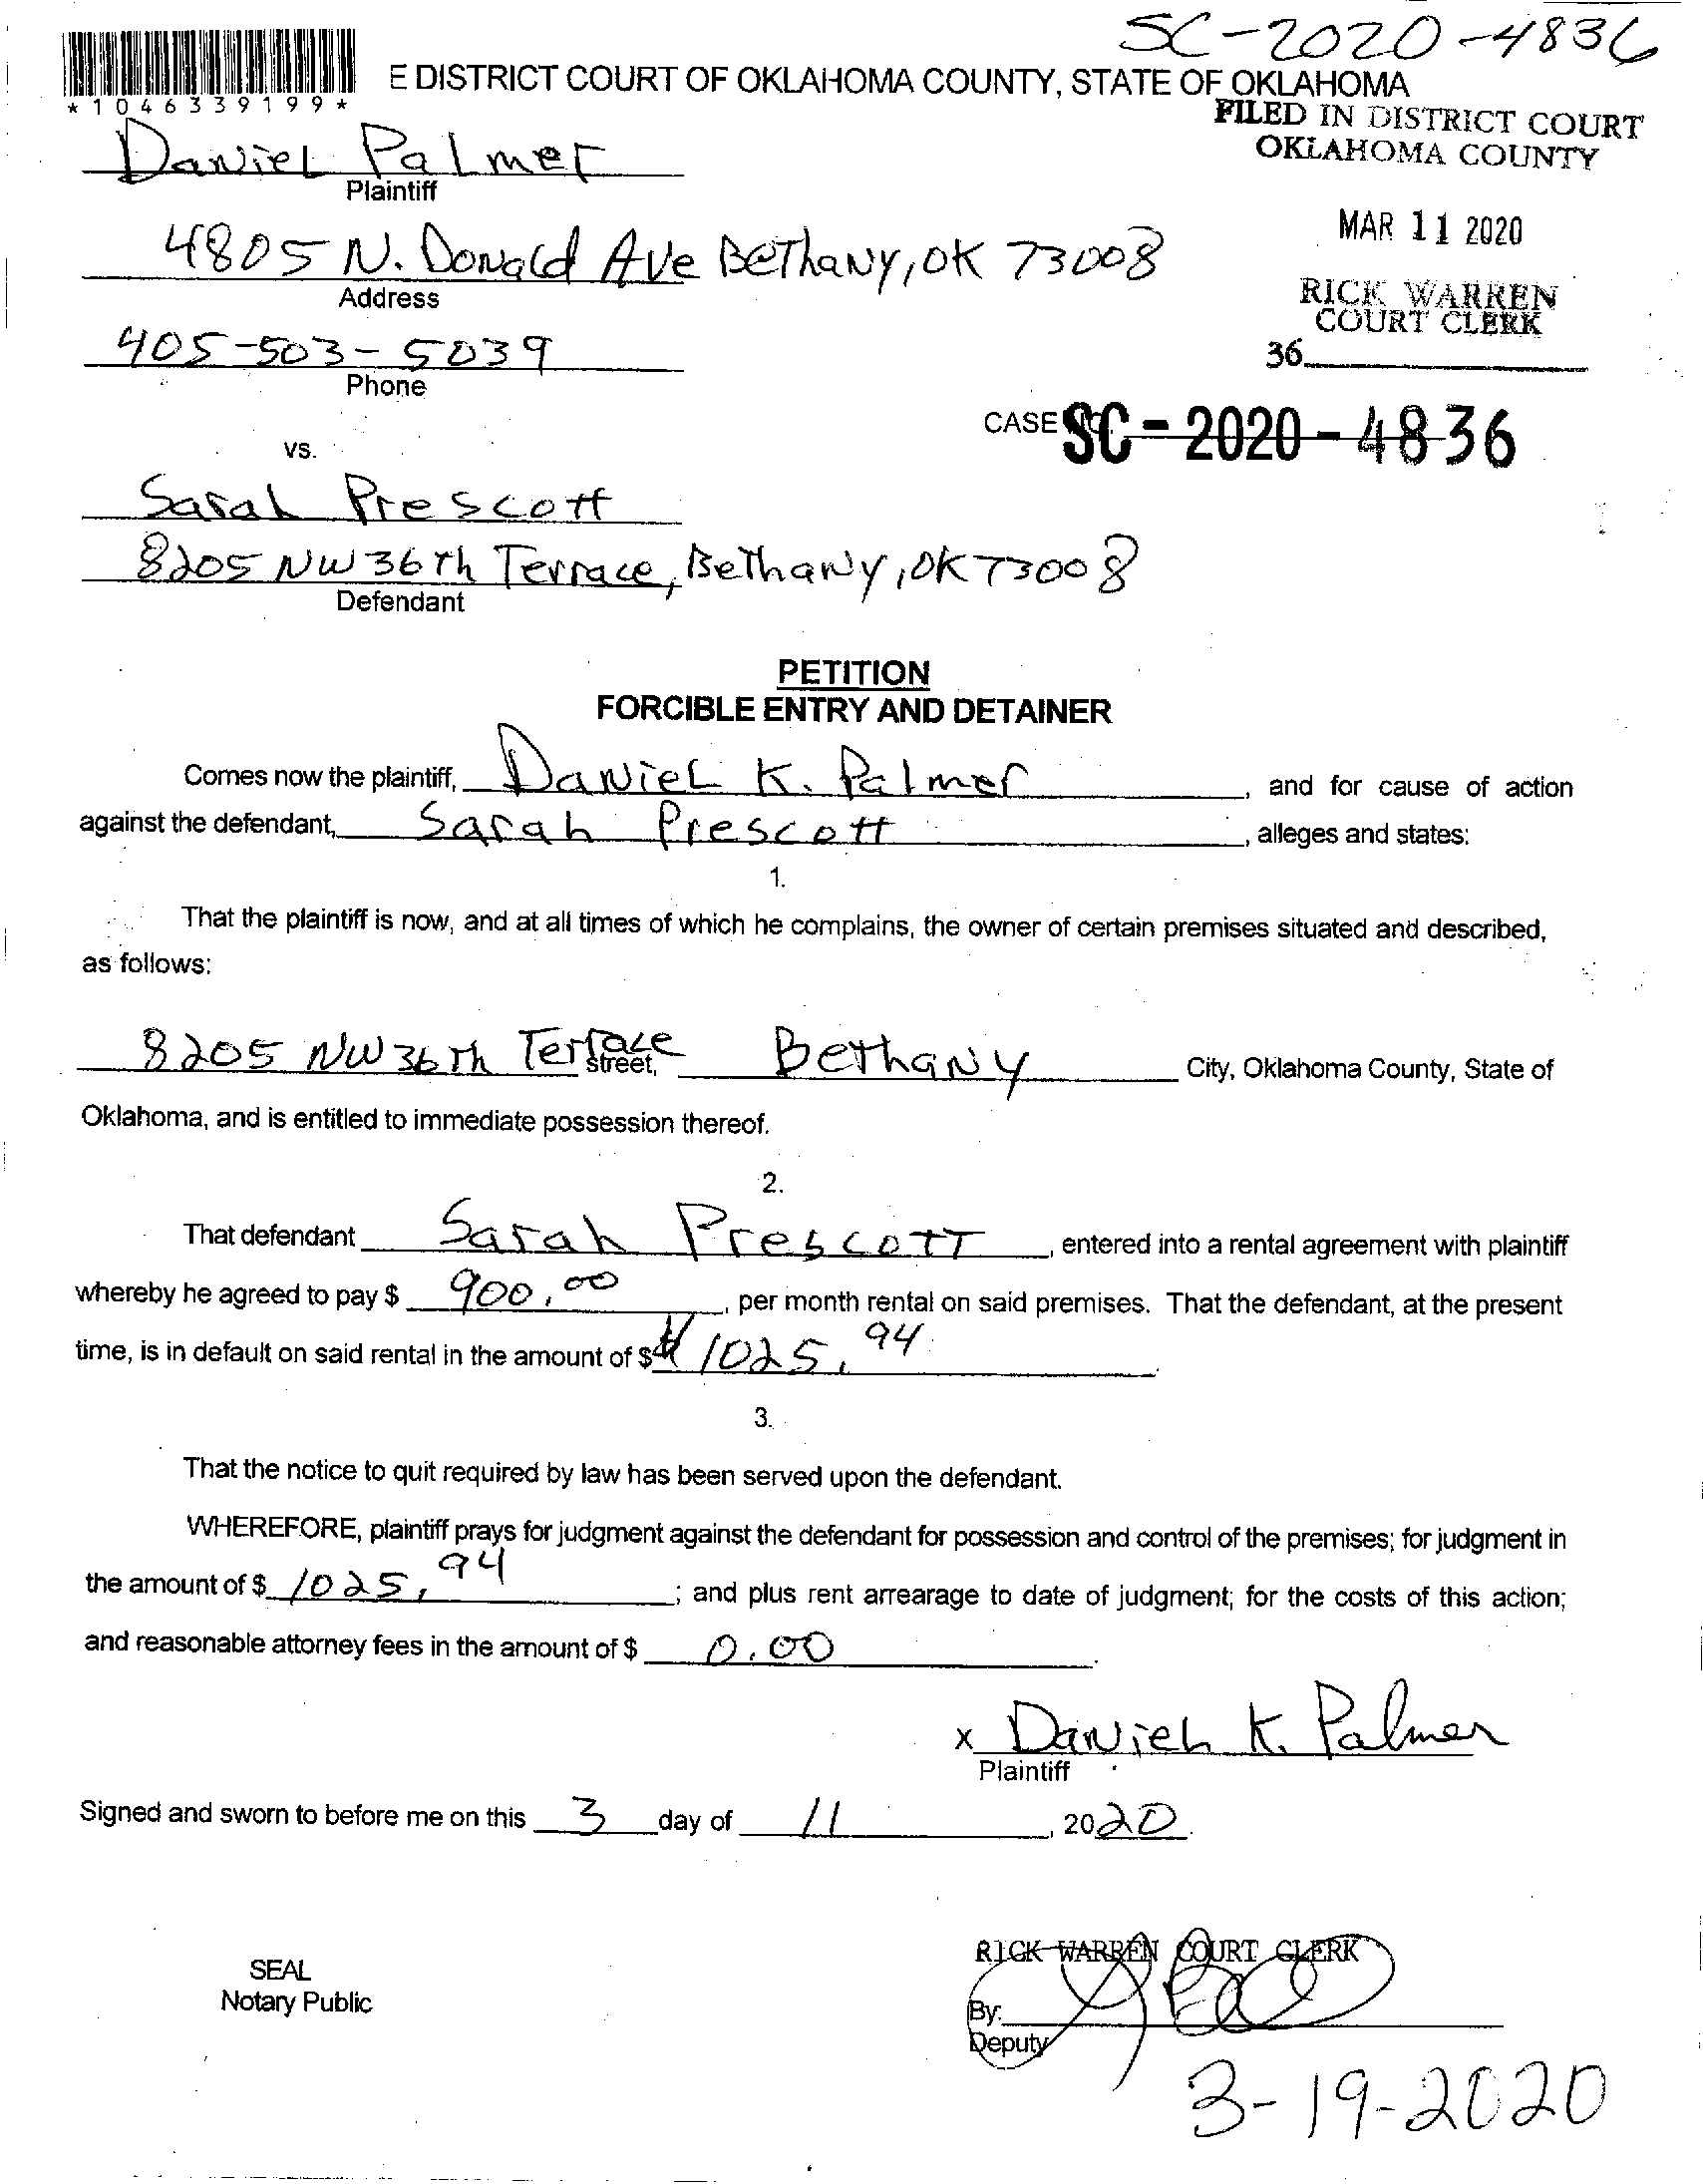 SC-2020-4836
E DISTRICT COURT OF OKLAHOMA COUNTY, STATE OF OKLAHOMA
*1046339199*
FILED IN DISTRICT COURT
OKLAHOMA COUNTY
Daniel Palmer
Plaintiff
MAR 11 2020
4805 N. Donald Ave Bethany, OK 73008
Address
RICK WARREN
COURT CLERK
405-503-5039
36
Phone
CASE SC-2020-4836
vs.
Sarah Prescott
8205 NW 36th Terrace, Bethany, OK 73008
Defendant
PETITION
FORCIBLE ENTRY AND DETAINER
Comes now the plaintiff, Daniel K. Palmer, and for cause of action
against the defendant, Sarah Prescott, alleges and states:
1.
That the plaintiff is now, and at all times of which he complains, the owner of certain premises situated and described,
as follows:
8205 NW 36th Terrace street, Bethany City, Oklahoma County, State of
Oklahoma, and is entitled to immediate possession thereof.
2.
That defendant Sarah Prescott, entered into a rental agreement with plaintiff
whereby he agreed to pay $ 900.00, per month rental on said premises. That the defendant, at the present
time, is in default on said rental in the amount of $ 1025.94.
3.
That the notice to quit required by law has been served upon the defendant.
WHEREFORE, plaintiff prays for judgment against the defendant for possession and control of the premises; for judgment in
the amount of $ 1025.94; and plus rent arrearage to date of judgment; for the costs of this action;
and reasonable attorney fees in the amount of $ 0.00.
x Daniel K. Palmer
Plaintiff
Signed and sworn to before me on this 3 day of 11, 2020.
RICK WARREN COURT CLERK
SEAL
Notary Public
By:
Deputy
3-19-2020